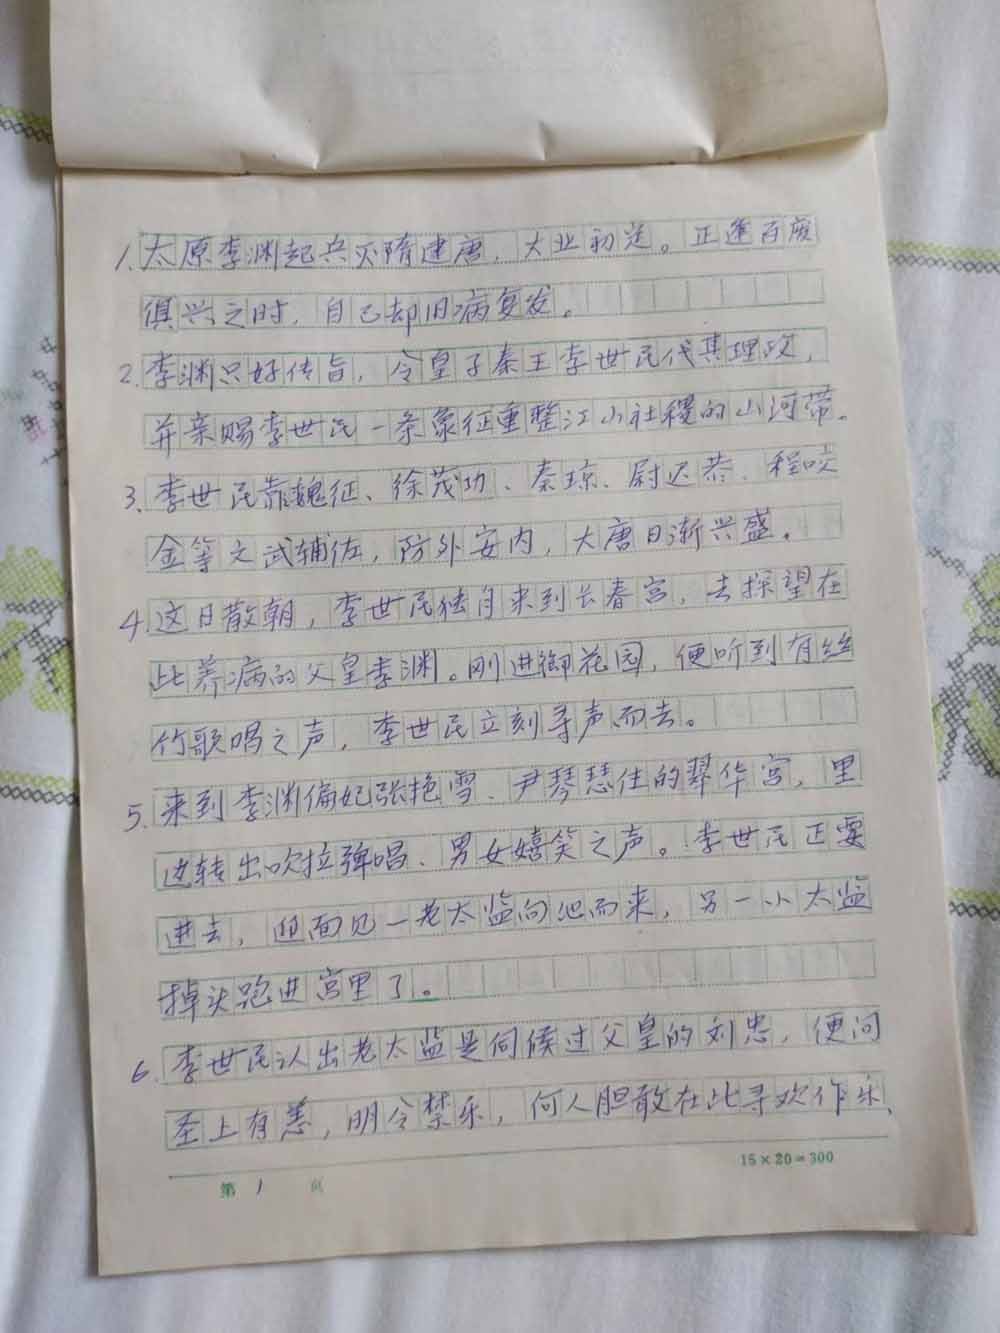 1.太原李渊起兵灭隋建唐，大业初定。正逢百废
俱兴之时，自己却旧病复发。
2.李渊只好传旨，令皇子秦王李世民代其理政，
并亲赐李世民一条象征重整江山社稷的山河带。
3、李世民靠魏征、徐茂功、秦琼、尉迟恭、程咬
金等文武辅佐，防外安内，大唐日渐兴盛。
4.这日散朝，李世民独自来到长春宫，去探望在
此养病的父皇李渊。刚进御花园，便听到有丝
竹歌唱之声，李世民立刻寻声而去。
5.来到李渊偏妃张艳雪、尹琴瑟住的翠华宫，里
边转出吹拉弹唱、男女嬉笑之声。李世民正要
进去，迎面见一老太监向他而来，另一小太监
掉头跑进宫里了。
6.李世民认出老太监是伺候过父皇的刘忠，便问
圣上有恙，明令禁乐，何人胆敢在此寻欢作乐、
15×20=300
第1页